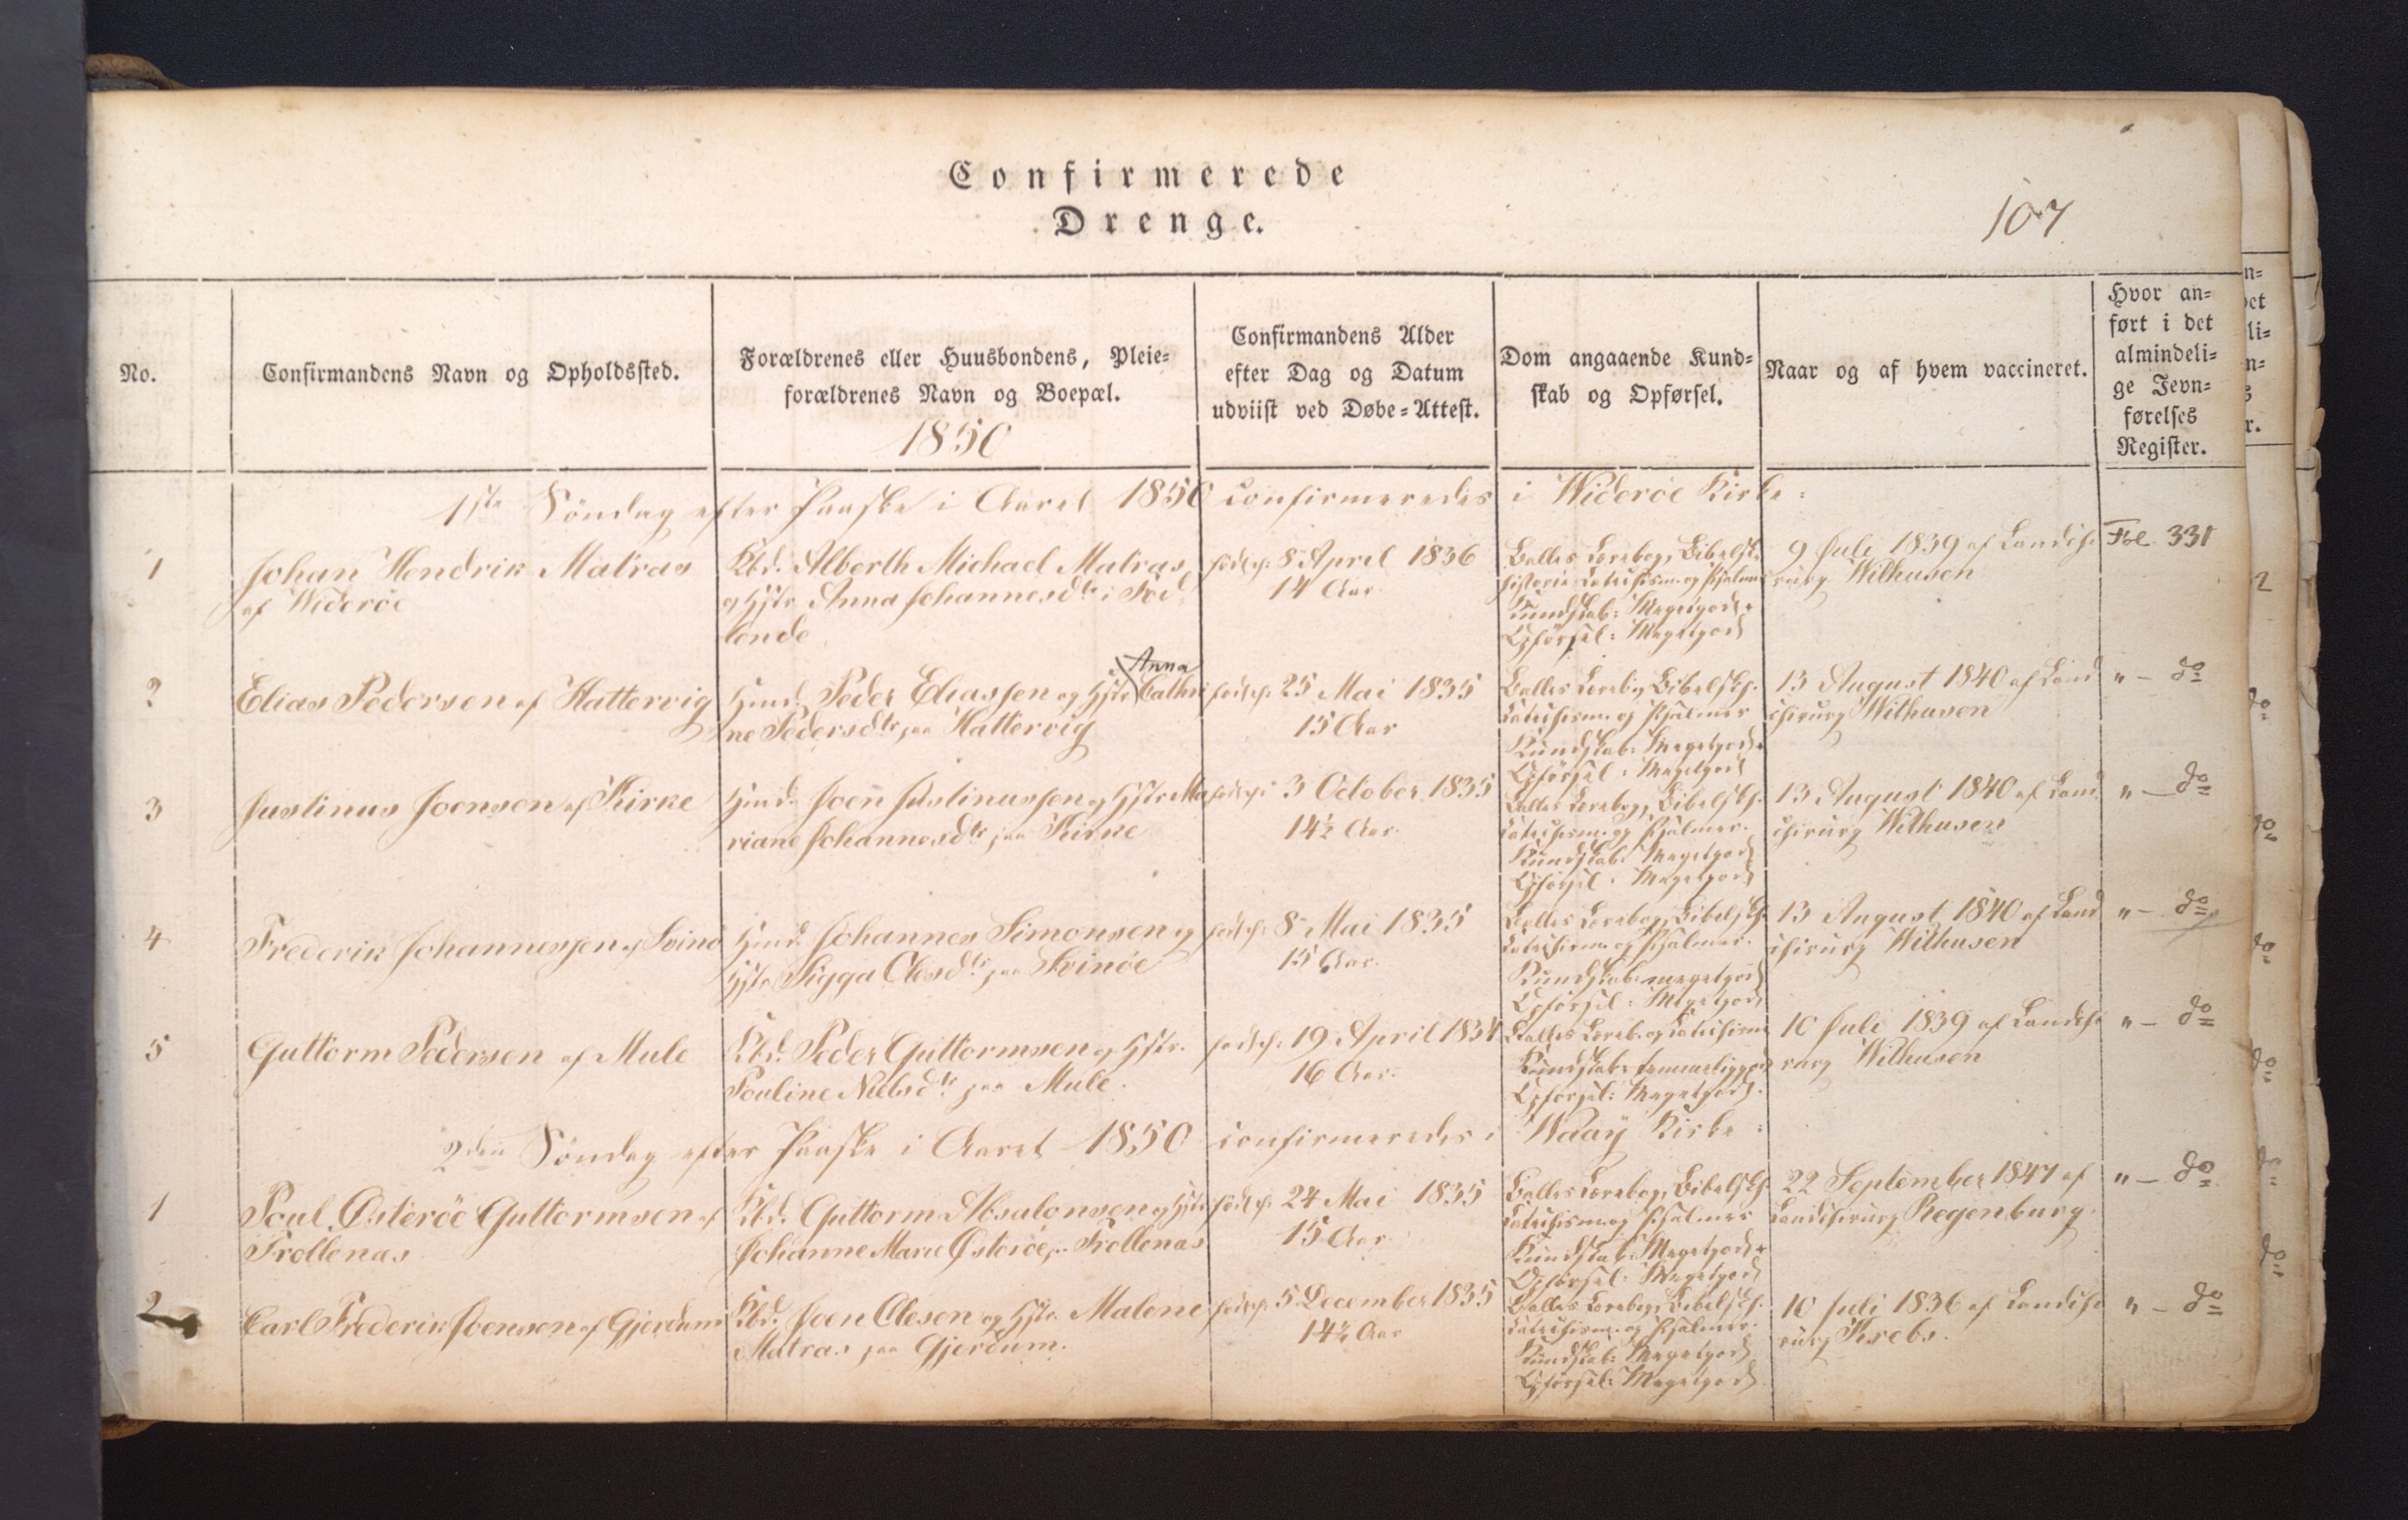 Confirmerede
Drenge.
107
No.
Confirmandens Navn og Opholdssted.
Forældrenes eller Huusbondens, Pleie=
forældrenes Navn og Boepæl.
Confirmandens Alder
efter Dag og Datum
udviist ved Døbe=Attest.
Dom angaaende Kund=
skab og Opførsel.
Naar og af hvem vaccineret.
Hvor an=
ført i det
almindeli=
ge Jevn=
førelses
Register.
1850
1ste Söndag efter Paaske i Aaret 1850 confirmeredes i Widerøe Kirke:
1
Johan Hendrik Matras
af Widerøe
Kbd. Alberth Michael Matras
og Hstr. Anna Johannesdtr i
8 April 1836
14 Aar
Balles Lærebog, Bibelsk.
historie Catechism. og Psalmer
Kundskab: Megetgodt+
Opførsel: Megetgod
9 Juli 1839 af Landchi
rurg Wilhusen
Fol. 331
2
Elias Pedersen af Hattervig
Peder Eliassen og Hstr. Anna Cathri
ne Pedersdtr paa Hattervig
25 Mai 1835
15 Aar
Balles Lærebog, Bibelsk.
Catechism. og Psalmer
Kundskab: Megetgodt+
Opførsel: Megetgod
13 August 1840 af Land
chirurg Wilhusen
" - do
3
Justinus Joensen af Kirke
Joen Justinussen og Hstr. Ma
riane Johannesdtr paa Kirke
3 October 1835
14½ Aar.
Balles Lærebog, Bibelsk.
Catechism. og Psalmer.
Kundskab: Megetgodt
Opførsel: Megetgod
13 August 1840 af Land
chirurg Wilhusen
" - do
4
Frederik Johannessen af Svinø
Johannes Simonsen og
Hstr. Sigga Olesdtr paa Svinöe
8 Mai 1835
15 Aar.
Balles Lærebog, Bibelsk.
Catechism. og Psalmer.
Kundskab: megetgodt
Opførsel: Megetgod
13 August 1840 af Land
chirurg Wilhusen
" - do
5
Guttorm Pedersen af Mule
Kbd. Peder Guttormsen og Hstr.
Pouline Nielsdtr paa Mule.
19 April 1834
16 Aar.
Balles Læreb. og Catechism
Kundskab: temmeliggodt
Opførsel: Megetgod.
10 Juli 1839 af Landchi
rurg Wilhusen
" - do
2den Söndag efter Paaske i Aaret 1850 confirmeredes i Waaÿ Kirke:
1
Poul Østeröe Guttormsen af
Trollenæs
Kbd. Guttorm Absalonsen og Hstr.
Johanne Marie Østeröe, paa Trollenæs
24 Mai 1835
15 Aar.
Balles Lærebog, Bibelsk.
Catechism. og Psalmer
Kundskab: Megetgodt+
Opførsel: Megetgod
22 September 1847 af
Landchirurg Regenburg.
" - do
2
Carl Frederik Joensen af Gjerdum
Kbd. Joen Olesen og Hstr. Malene
Matras paa Gjerdum.
5 December 1835
14½ Aar
Balles Lærebog, Bibelsk.
Catechism. og Psalmer.
Kundskab: Megetgodt
Opførsel: Megetgod
10 Juli 1836 af Landchi
rurg Krebs.
" - do